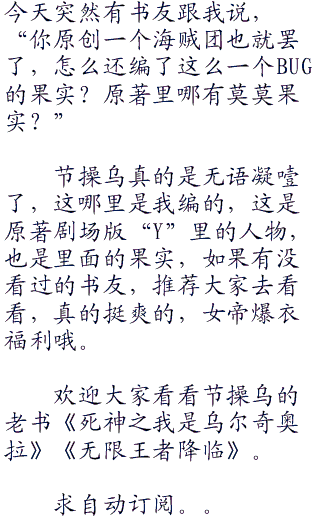 今天突然有书友跟我说，
“你原创一个海贼团也就罢
了，怎么还编了这么一个BUG
的果实？原著里哪有莫莫果
实？”
节操乌真的是无语凝噎
了，这哪里是我编的，这是
原著剧场版“Y”里的人物，
也是里面的果实，如果有没
看过的书友，推荐大家去看
看，真的挺爽的，女帝爆衣
福利哦。
欢迎大家看看节操乌的
老书《死神之我是乌尔奇奥
拉》《无限王者降临》。
求自动订阅。。